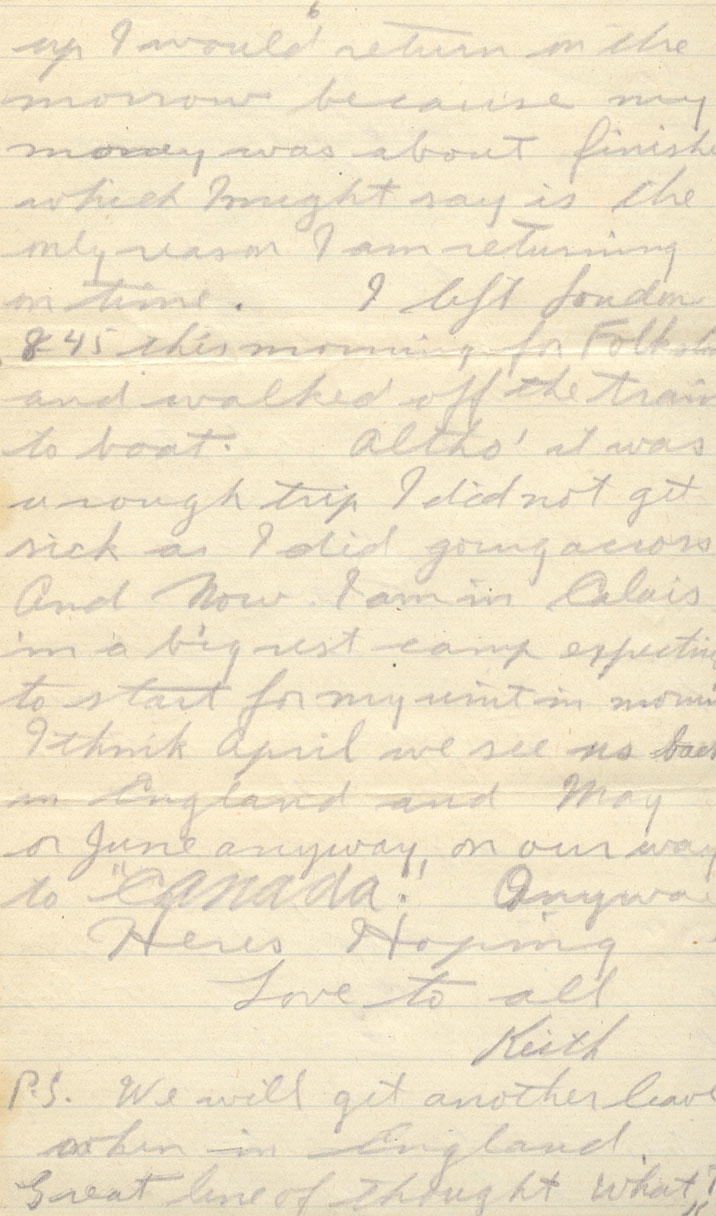 6
up I would return on the
morrow because my
money was about finishe
which I might say is the
only reason I am returning
on time. I left London
8.45 this morning for Folksto
and walked off the train
to boat. Altho' it was
a rough trip I did not get
sick as I did going across
And Now I am in Calais
in a big rest camp expecting
to start for my unit in morni
I think April we see us back
in England and May
or June anyway, on our way
to "Canada." Anyway
Heres Hoping
Love to all
Keith
P.S. We will get another leave
when in England
Great line of thought What?"